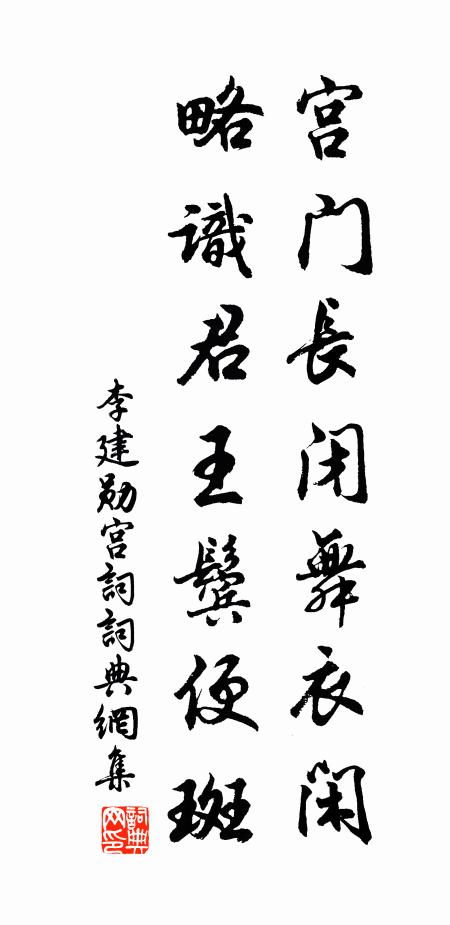 宫门長闭舞衣闲
略識君王鬓便斑
李建勋宫詞詞典網集
詞典网印